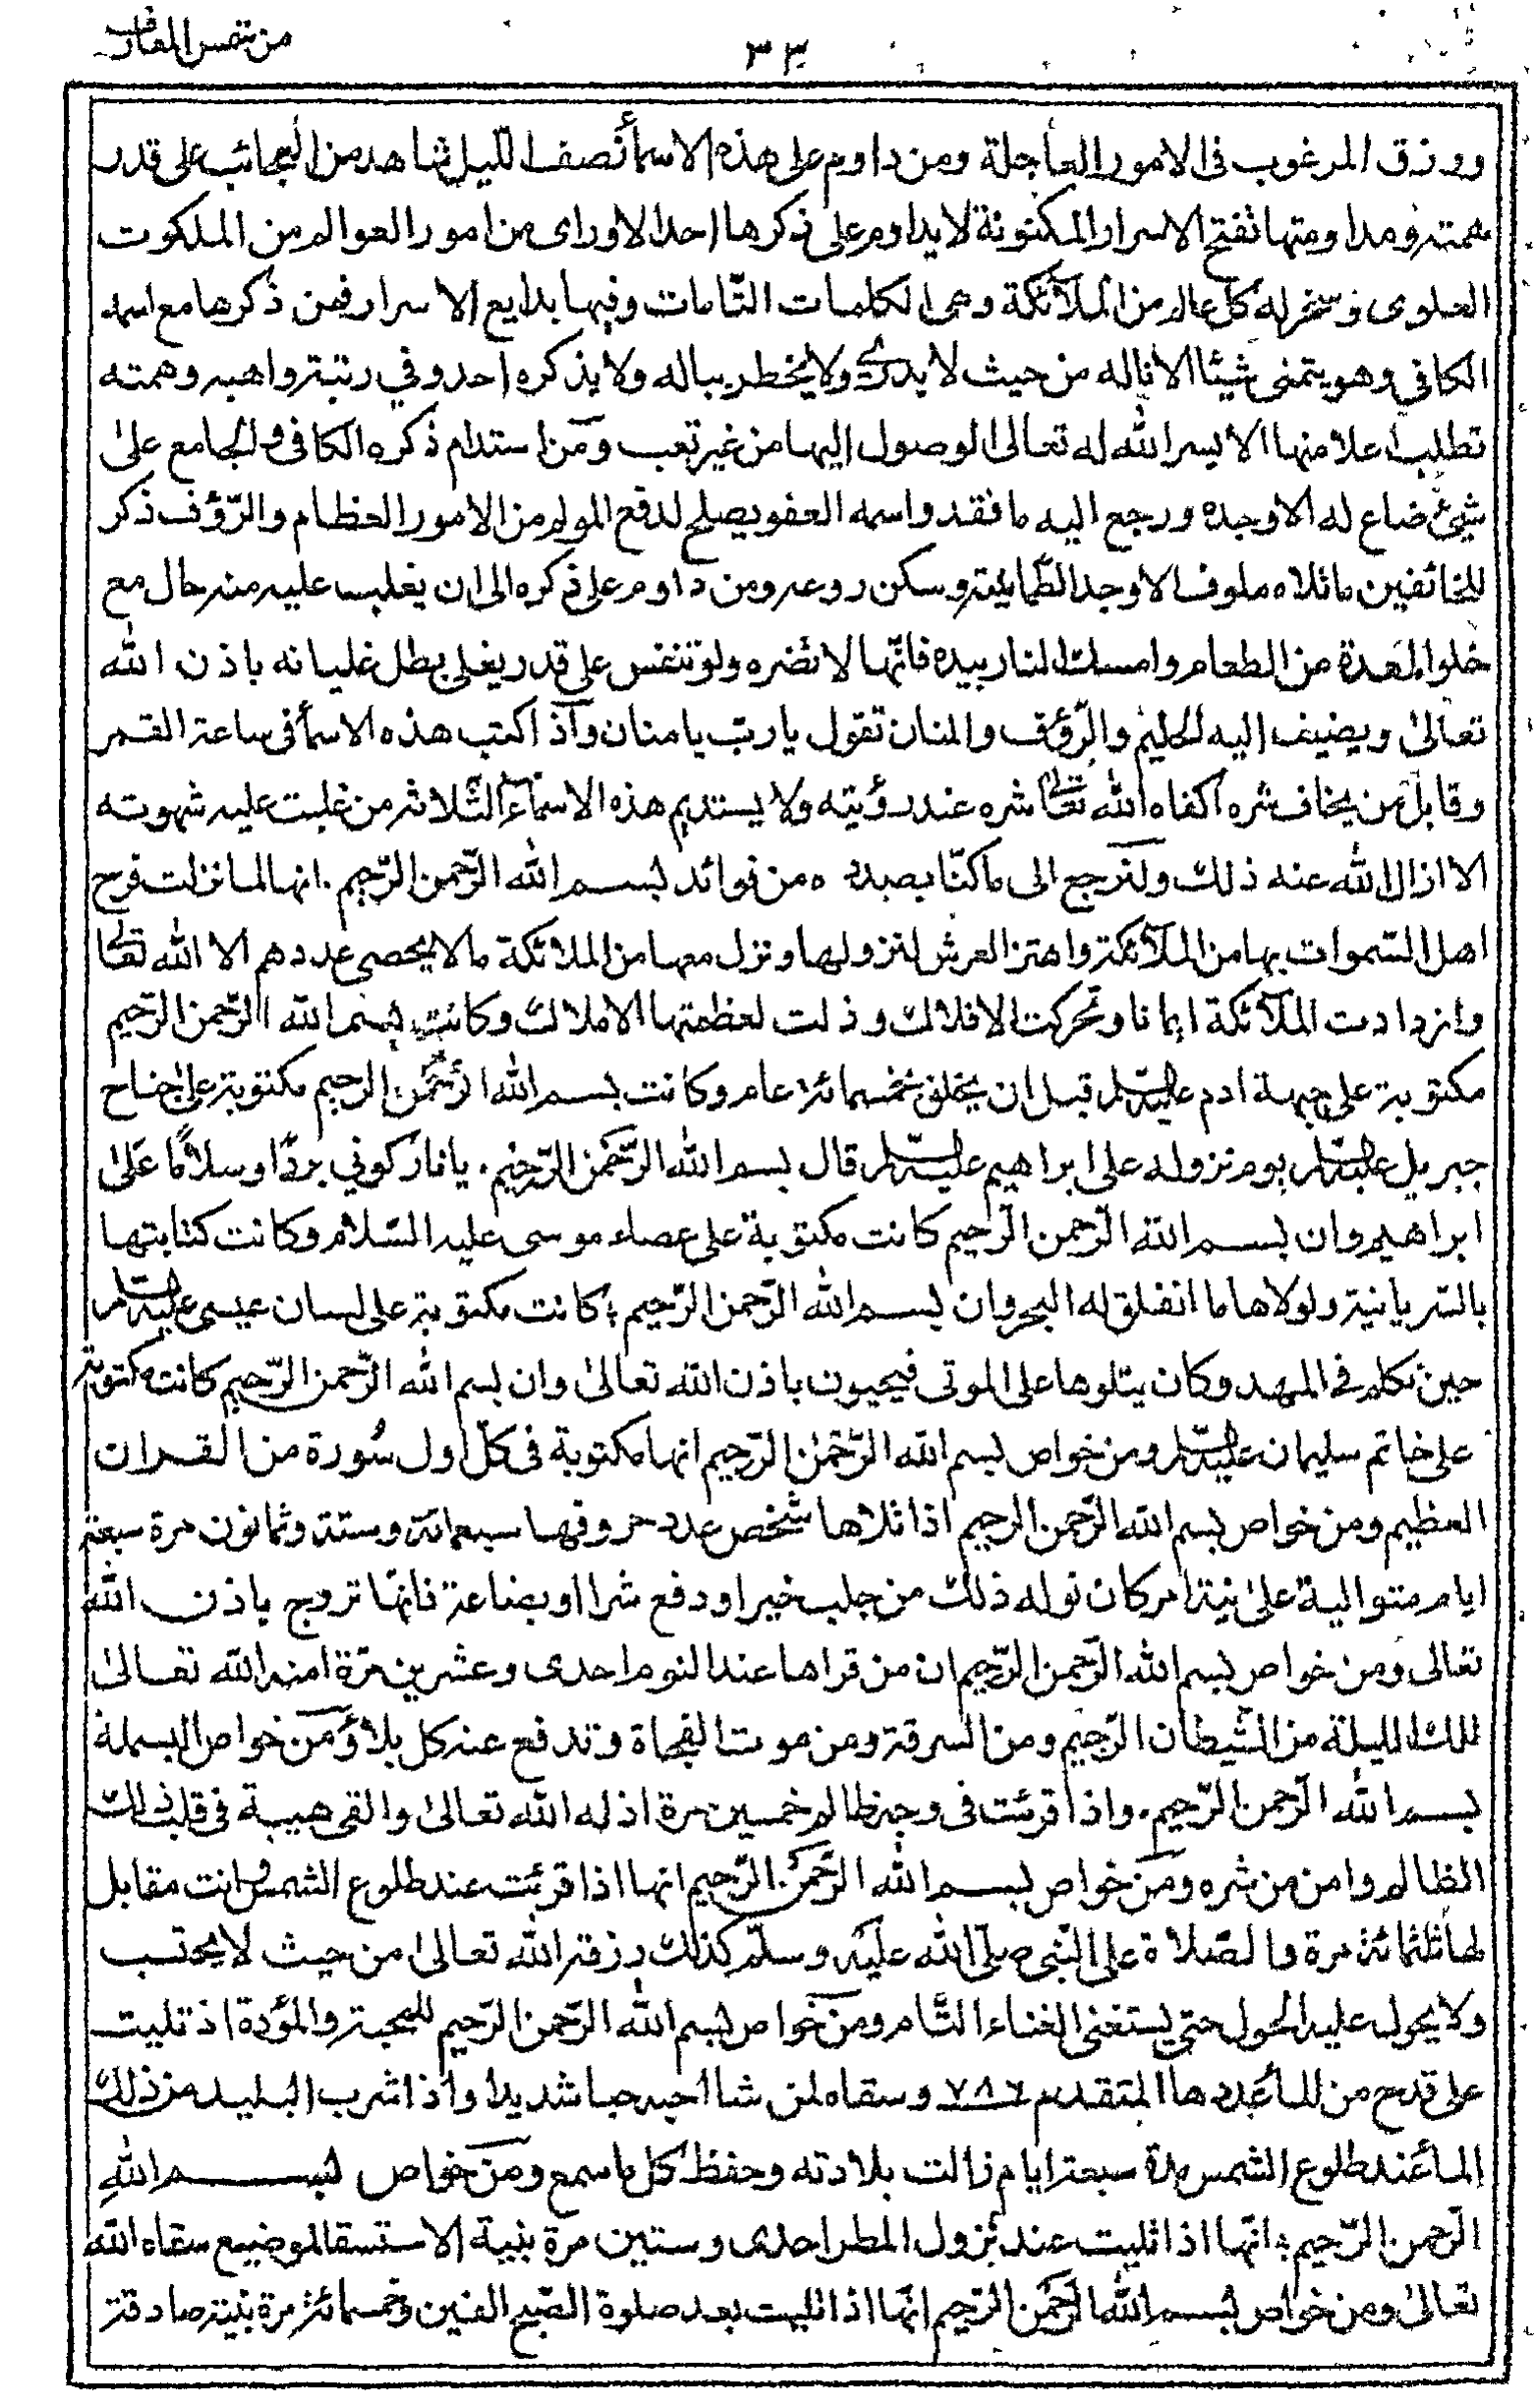 من شمس المعارف
٣٣
ورزق المرغوب فى الامور العاجلة ومن داوم على هذه الاسمأ نصف الليل شاهد من العجائب على قدر
همته ومداومتها تفتح الاسرار المكنونة لا يداوم على ذكرها احد الا وراى من امور العوالم من الملكوت
العلوى وسخر له كل عالم من الملآئكة وهى الكلمات التّامات وفيها بدايع الاسرار فمن ذكرها مع اسمه
الكافى وهو يتمنى شيئا الا ناله من حيث لا يدرى ولا يخطر بباله ولا يذكره احد وفي رتبته واهبه وهمته
تطلب اعلا منها الا يسر الله له تعالى الوصول اليها من غير تعب ومن استدام ذكره الكافى والجامع علىٰ
شيئ ضاع له الا وجده ورجع اليه ما فقد واسمه العفو يصلح لدفع المولم من الامور العظام والرّؤف ذكر
للخائفين ما تلاه ملوف الا وجد الطّمانينة وسكن روعه ومن داوم على ذكره الى ان يغلب عليه منه حال مع
خلو المعدة من الطعام وامسك النار بيده فانّها لا تضره ولو تنفس على قدر يغلى بطل غليانه باذن الله
تعالىٰ ويضيف اليه الحليم والرّؤف والمنان تقول يا ربّ يا منان وآذا كتب هذه الاسمأ فى ساعة القمر
وقابل من يخاف شره اكفاه الله تعالىٰ شره عند رؤيته ولا يستديم هذه الاسمآء الثّلاثة من غلبت عليه شهوته
الا ازال الله عنه ذلك ولنرجع الى ما كنّا بصدده من فوائد بسم الله الرّحمن الرّحيم . انها لما نزلت فرح
اهل السّموات بها من الملآئكة واهتز العرش لنزولها ونزل معها من الملائكة ما لا يحصى عددهم الا الله تعالىٰ
وازدادت الملآئكة ايمانا وتحركت الافلاك وذلت لعظمتها الاملاك وكانت بسم الله الرّحمن الرّحيم
مكتوبة على جبهة ادم عليه السّلام قبل ان يخلق بخمسمائة عام وكانت بسم الله الرّحمٰن الرحيم مكتوبة على جناح
جبريل عليه السّلام يوم نزوله على ابراهيم عليه السّلام قال بسم الله الرّحمن الرّحيم . يا نار كوني بردًا وسلامًا علىٰ
ابراهيم وان بسم الله الرّحمن الرّحيم كانت مكتوبة على عصاء موسى عليه السّلام وكانت كتابتها
بالسّريانية ولولاها ما انفلق له البحر وان بسم الله الرّحمن الرّحيم ؛ كانت مكتوبة على لسان عيسى عليه السّلام
حين تكلم فى المهد وكان يتلوها على الموتى فيحيون باذن الله تعالىٰ وان بسم الله الرّحمن الرّحيم كانت مكتوبة
على خاتم سليمان عليه السّلام ومن خواص بسم الله الرّحمٰن الرّحيم انها مكتوبة فى كلّ اول سُورة من القران
العظيم ومن خواص بسم الله الرّحمن الرحيم اذا تلاها شخص عدد حروفها سبعمائة وستة وثمانون مرة سبعة
ايام متوالية علىٰ نية امر كان توله ذلك من جلب خير او دفع شر او بضاعة فانهّا تروج باذن الله
تعالى ومن خواص بسم الله الرّحمن الرّحيم ان من قراها عند النوم احدى وعشرين مرّة امنه الله تعالىٰ
تلك الليلة من الشّيطان الرّجيم ومن السرقة ومن موت الفجاة وتدفع عنه كل بلاؤ ومن خواص البسملة
بسم الله الرّحمن الرّحيم . واذا قرئت فى وجه ظالم خمسين مرة اذله الله تعالىٰ والقى هيبة فى قلب ذلك
الظالم وامن من شره ومن خواص بسم الله الرّحمٰن الرّحيم انها اذا قرئت عند طلوع الشمس وانت مقابل
لها ثلثمائة مرة والصّلاة على النّبى صلّى الله عليه وسلّم كذلك رزقه الله تعالىٰ من حيث لا يحتسب
ولا يحول عليه الحول حتى يستغنى الغناء التّام ومن خواص بسم الله الرّحمن الرّحيم للمحبة والمؤدة اذ تليت
على قدح من المأ عددها المتقدم ٧٨٦ وسقاه لمن شا احبه حبا شديدا واذا شرب البليد من ذلك
المأ عند طلوع الشمس مدة سبعة ايام زالت بلادته وحفظ كل ما سمع ومن خواص بسم اللهِ
الرّحمن الرّحيم ؛ انّها اذا تليت عند نزول المطر احدى وستين مرة بنية الاستسقا لموضيع سقاه الله
تعالىٰ ومن خواص بسم الله الرّحمٰن الرّحيم انّها اذا تليت بعد صلوة الصّبح الفين وخمسمائة مرة بنية صادقة